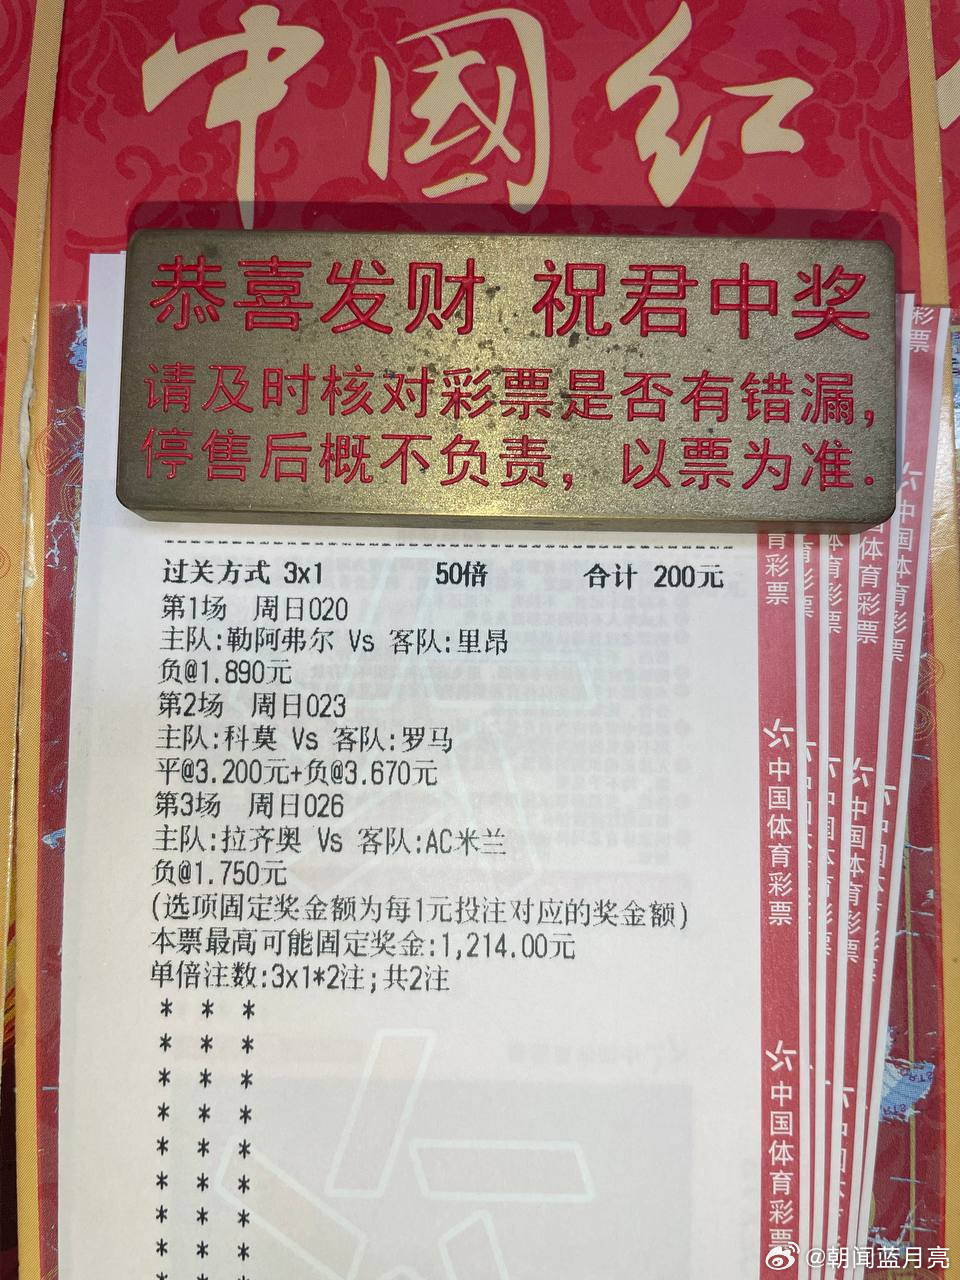 中國红
恭喜发财 祝君中奖
请及时核对彩票是否有错漏,
停售后概不负责, 以票为准.
过关方式 3x1 50倍 合计 200元
第1场 周日020
主队:勒阿弗尔 Vs 客队:里昂
负@1.890元
第2场 周日023
主队:科莫 Vs 客队:罗马
平@3.200元+负@3.670元
第3场 周日026
主队:拉齐奥 Vs 客队:AC米兰
负@1.750元
(选项固定奖金额为每1元投注对应的奖金额)
本票最高可能固定奖金:1,214.00元
单倍注数:3x1*2注;共2注
* * *
* * *
* * *
* * *
* * *
* * *
* * *
* * *
彩票
育彩票
中国体育彩票
中国体育彩票
中国体育彩票
体育彩票
中国体育彩票
@朝闻蓝月亮